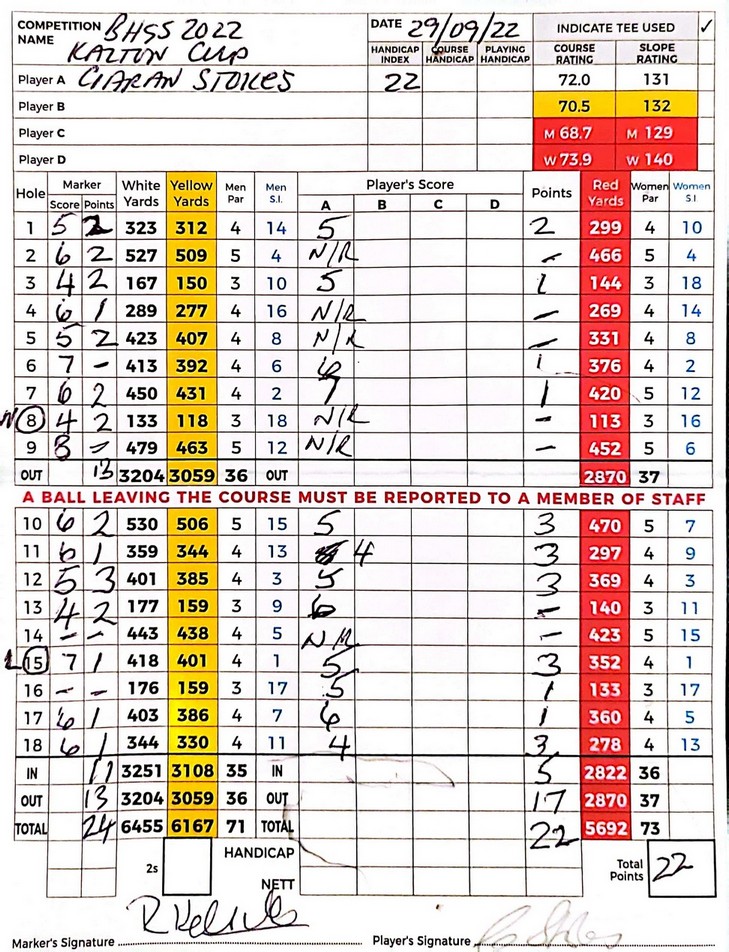 COMPETITION NAME BHSS 2022 DATE 29/09/22 INDICATE TEE USED ✓
KALTON CUP HANDICAP INDEX COURSE HANDICAP PLAYING HANDICAP COURSE RATING SLOPE RATING
Player A CIARAN STOKES 22 72.0 131
Player B 70.5 132
Player C M 68.7 M 129
Player D W 73.9 W 140
Hole Marker White Yards Yellow Yards Men Par Men S.I. Player's Score Points Red Yards Women Par Women S.I.
Score Points A B C D
1 5 2 323 312 4 14 5 2 299 4 10
2 6 2 527 509 5 4 N/R - 466 5 4
3 4 2 167 150 3 10 5 1 144 3 18
4 6 1 289 277 4 16 N/R - 269 4 14
5 5 2 423 407 4 8 N/R - 331 4 8
6 7 - 413 392 4 6 1 376 4 2
7 6 2 450 431 4 2 7 1 420 5 12
8 4 2 133 118 3 18 N/R - 113 3 16
9 8 - 479 463 5 12 N/R - 452 5 6
OUT 13 3204 3059 36 OUT 2870 37
A BALL LEAVING THE COURSE MUST BE REPORTED TO A MEMBER OF STAFF
10 6 2 530 506 5 15 5 3 470 5 7
11 6 1 359 344 4 13 4 3 297 4 9
12 5 3 401 385 4 3 5 3 369 4 3
13 4 2 177 159 3 9 6 - 140 3 11
14 - - 443 438 4 5 N/R - 423 5 15
L 15 7 1 418 401 4 1 5 3 352 4 1
16 - - 176 159 3 17 5 1 133 3 17
17 6 1 403 386 4 7 6 1 360 4 5
18 6 1 344 330 4 11 4 3 278 4 13
IN 11 3251 3108 35 IN 5 2822 36
OUT 13 3204 3059 36 OUT 17 2870 37
TOTAL 24 6455 6167 71 TOTAL 22 5692 73
2s HANDICAP Total Points 22
NETT
Marker's Signature Player's Signature